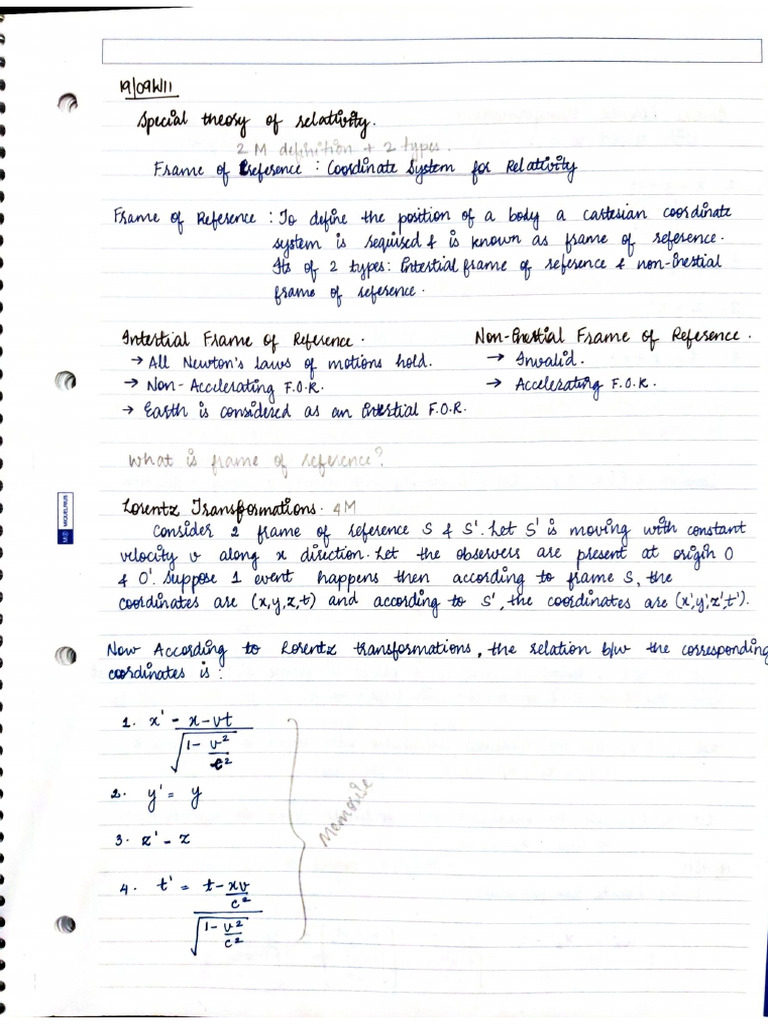 19/09/11
Special theory of relativity.
2 M definition + 2 types.
Frame of Reference : Coordinate System for Relativity
Frame of Reference : To define the position of a body a cartesian coordinate
system is required & is known as frame of reference.
Its of 2 types: Intertial frame of reference & non-Inertial
frame of reference.
Intertial Frame of Reference. Non-Inertial Frame of Reference.
→ All Newton's laws of motions hold. → Invalid.
→ Non-Accelerating F.O.R. → Accelerating F.O.R.
→ Earth is considered as an Intertial F.O.R.
What is frame of reference?
Lorentz Transformations. 4M
Consider 2 frame of reference S & S'. Let S' is moving with constant
velocity v along x direction. Let the observers are present at origin O
& O'. Suppose 1 event happens then according to frame S, the
coordinates are (x,y,z,t) and according to S', the coordinates are (x',y',z',t').
Now According to Lorentz transformations, the relation b/w the corresponding
coordinates is :
1. x' = x-vt
√1- v²
c²
2. y' = y
Memorise
3. z' = z
4. t' = t- xv
c²
√1- v²
c²
MIQUELRIUS